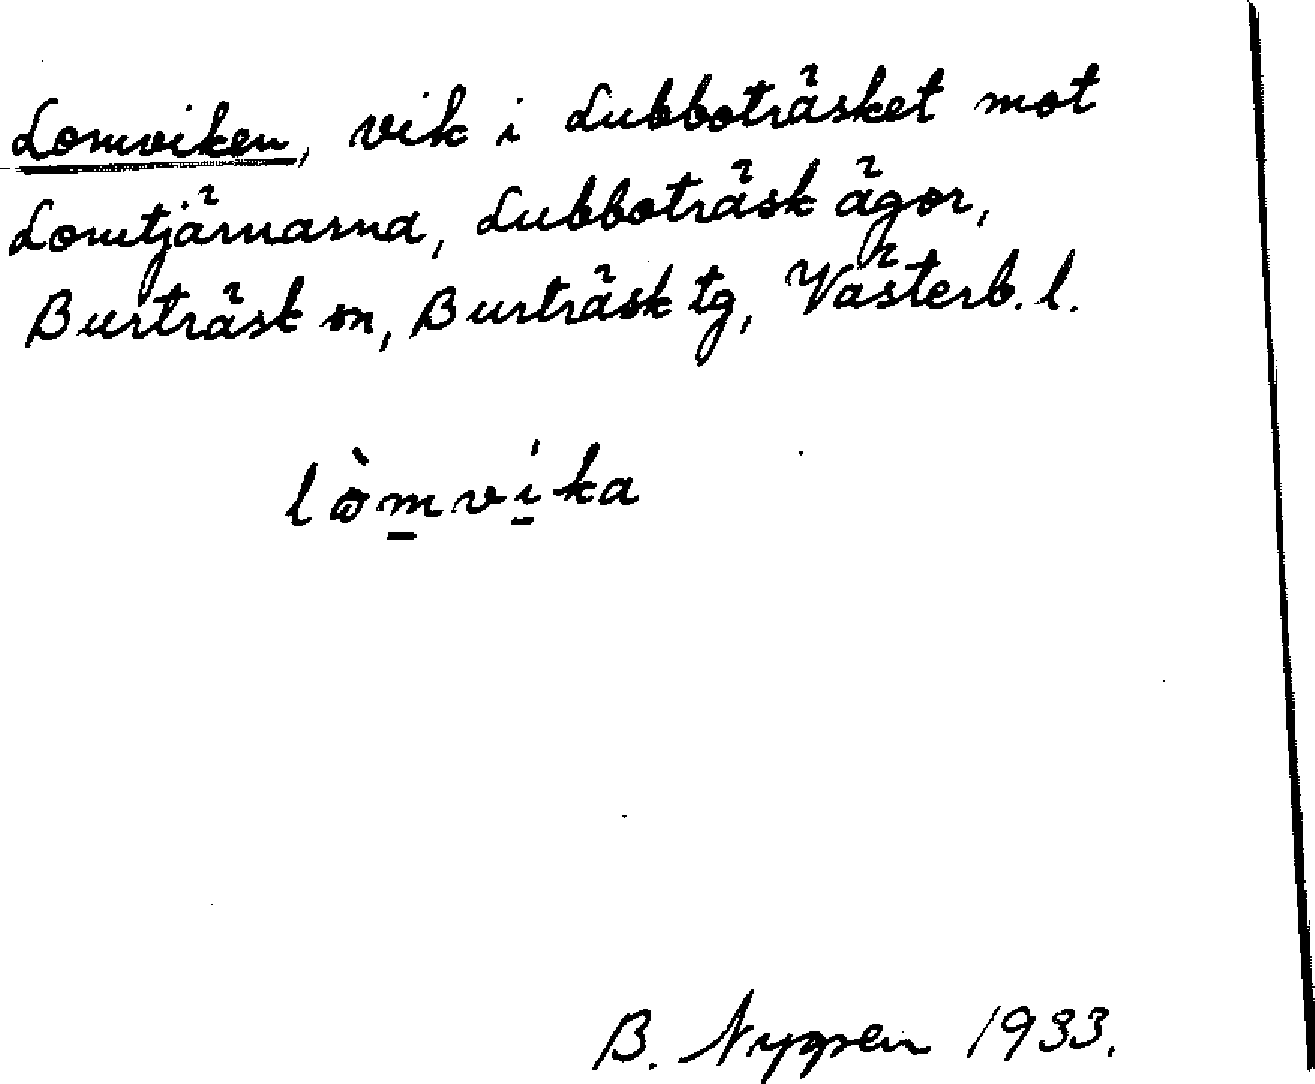 Lomviken, vik i Lubboträsket mot
Lomtjärnarna, Lubboträsk ägor,
Burträsk sn, Burträsk tg, Västerb. l.
lòm̱ví̱ka
B. Nygren 1933.